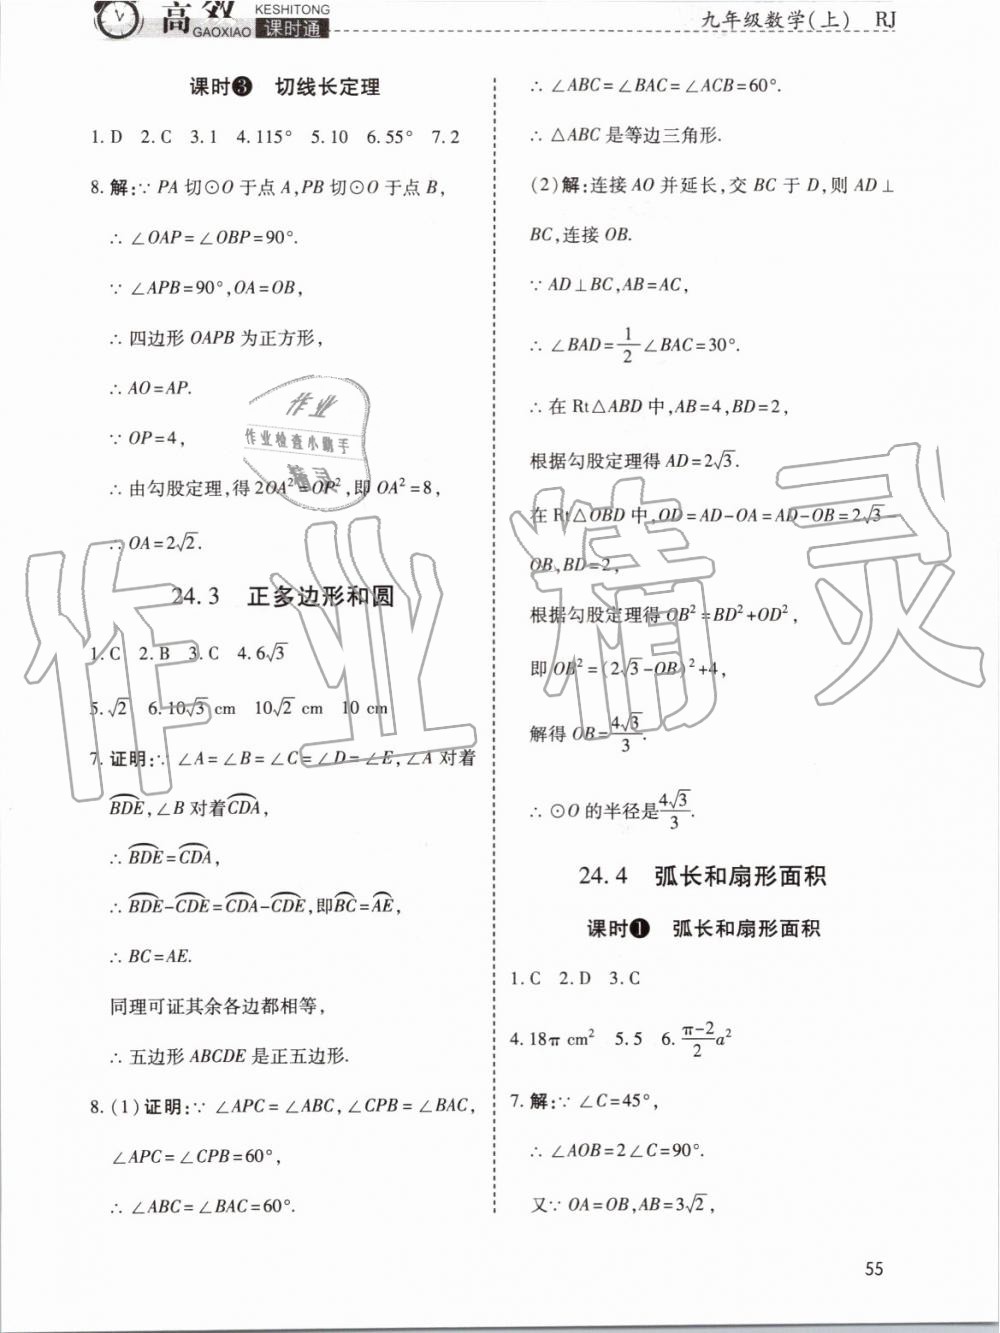 高效 KESHITONG
GAOXIAO 课时通
九年级数学(上) RJ
课时❸ 切线长定理
1. D 2. C 3. 1 4. 115° 5. 10 6. 55° 7. 2
8. 解:∵ PA 切⊙O 于点 A,PB 切⊙O 于点 B,
∴ ∠OAP=∠OBP=90°.
∵ ∠APB=90°,OA=OB,
∴ 四边形 OAPB 为正方形,
∴ AO=AP.
∵ OP=4,
∴ 由勾股定理,得 2OA²=OP²,即 OA²=8,
∴ OA=2√2.
24.3 正多边形和圆
1. C 2. B 3. C 4. 6√3
5. √2 6. 10√3 cm 10√2 cm 10 cm
7. 证明:∵ ∠A=∠B=∠C=∠D=∠E,∠A 对着
⌒BDE,∠B 对着⌒CDA,
∴ ⌒BDE=⌒CDA,
∴ ⌒BDE-⌒CDE=⌒CDA-⌒CDE,即⌒BC=⌒AE,
∴ BC=AE.
同理可证其余各边都相等,
∴ 五边形 ABCDE 是正五边形.
8. (1)证明:∵ ∠APC=∠ABC,∠CPB=∠BAC,
∠APC=∠CPB=60°,
∴ ∠ABC=∠BAC=60°.
∴ ∠ABC=∠BAC=∠ACB=60°.
∴ △ABC 是等边三角形.
(2)解:连接 AO 并延长,交 BC 于 D,则 AD⊥
BC,连接 OB.
∵ AD⊥BC,AB=AC,
∴ ∠BAD=1/2∠BAC=30°.
∴ 在 Rt△ABD 中,AB=4,BD=2,
根据勾股定理得 AD=2√3.
在 Rt△OBD 中,OD=AD-OA=AD-OB=2√3-
OB,BD=2,
根据勾股定理得 OB²=BD²+OD²,
即 OB²=(2√3-OB)²+4,
解得 OB=4√3/3.
∴ ⊙O 的半径是4√3/3.
24.4 弧长和扇形面积
课时❶ 弧长和扇形面积
1. C 2. D 3. C
4. 18π cm² 5. 5 6. (π-2)/2 a²
7. 解:∵ ∠C=45°,
∴ ∠AOB=2∠C=90°.
又∵ OA=OB,AB=3√2,
55
作业
作业检查小助手
精灵
作业精灵